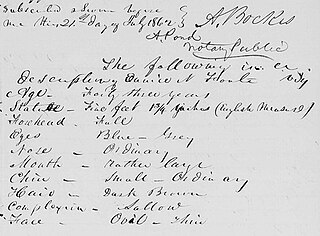 Subscribed & Sworn before
me this 21st day of July 1862 A. Bockes
A. Pond
Notary Public
The following is a
Description
Age - Forty three years
Stature - Five feet 1¾ inches (English Measured)
Forehead - Full
Eyes Blue - Grey
Nose - Ordinary
Mouth - Rather large
Chin - Small - Ordinary
Hair - Dark Brown
Complexion - Sallow
Face - Oval - Thin